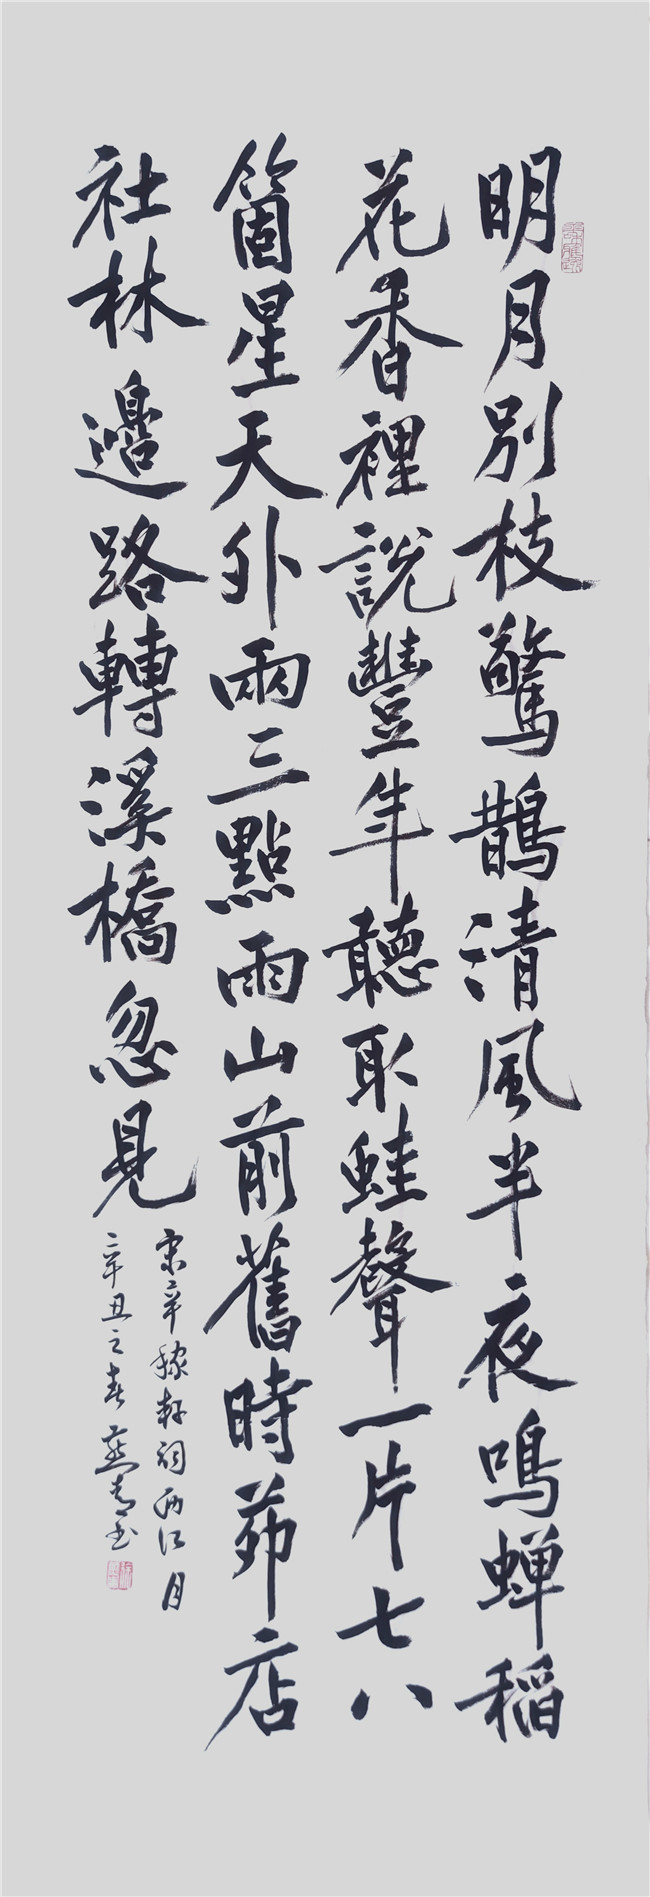 明月別枝驚鵲清風半夜鳴蟬稻
花香裡說豐年聽取蛙聲一片七八
箇星天外兩三點雨山前舊時茆店
社林邊路轉溪橋忽見
宋辛稼軒詞西江月
辛丑之春燕青书